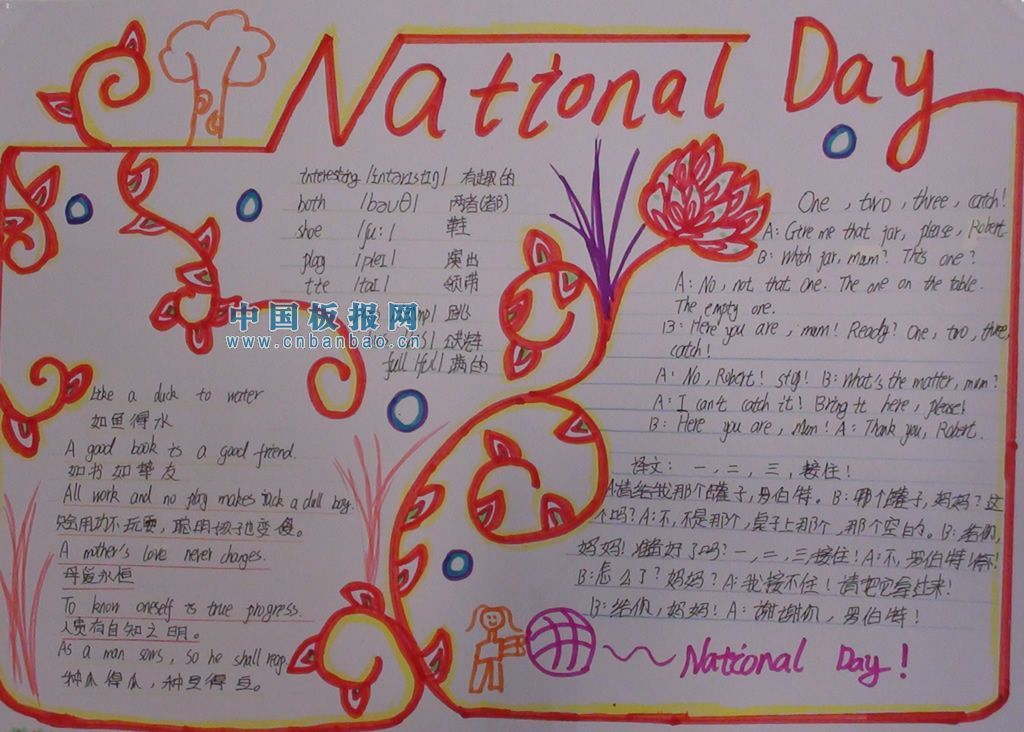 National Day
interesting /ɪntərɪstɪŋ/ 有趣的
both /bəuθ/ 两者(都)
shoe /ʃu:/ 鞋
play /pleɪ/ 演出
tie /taɪ/ 领带
中国板报网
www.cnbanbao.cn
full /ful/ 满的
Like a duck to water
如鱼得水
A good book is a good friend.
如书如挚友
All work and no play makes Jack a dull boy.
只会用功不玩耍，聪明孩子也变傻。
A mother's love never changes.
母爱永恒
To know oneself is true progress.
人贵有自知之明。
As a man sows, so he shall reap.
种瓜得瓜，种豆得豆。
One, two, three, catch!
A: Give me that jar, please, Robert.
B: Which jar, mum? This one?
A: No, not that one. The one on the table.
The empty one.
B: Here you are, mum! Ready? One, two, three,
catch!
A: No, Robert! stop! B: What's the matter, mum?
A: I can't catch it! Bring it here, please!
B: Here you are, Mum! A: Thank you, Robert.
译文：一，二，三，接住！
A:请给我那个罐子，罗伯特。B:哪个罐子，妈妈？这
个吗？A:不，不是那个，桌子上那个，那个空的。B:给你，
妈妈！准备好了吗？一，二，三，接住！A:不，罗伯特！
B:怎么了？妈妈？A:我接不住！请把它拿过来！
B:给你，妈妈！A:谢谢你，罗伯特！
National Day!